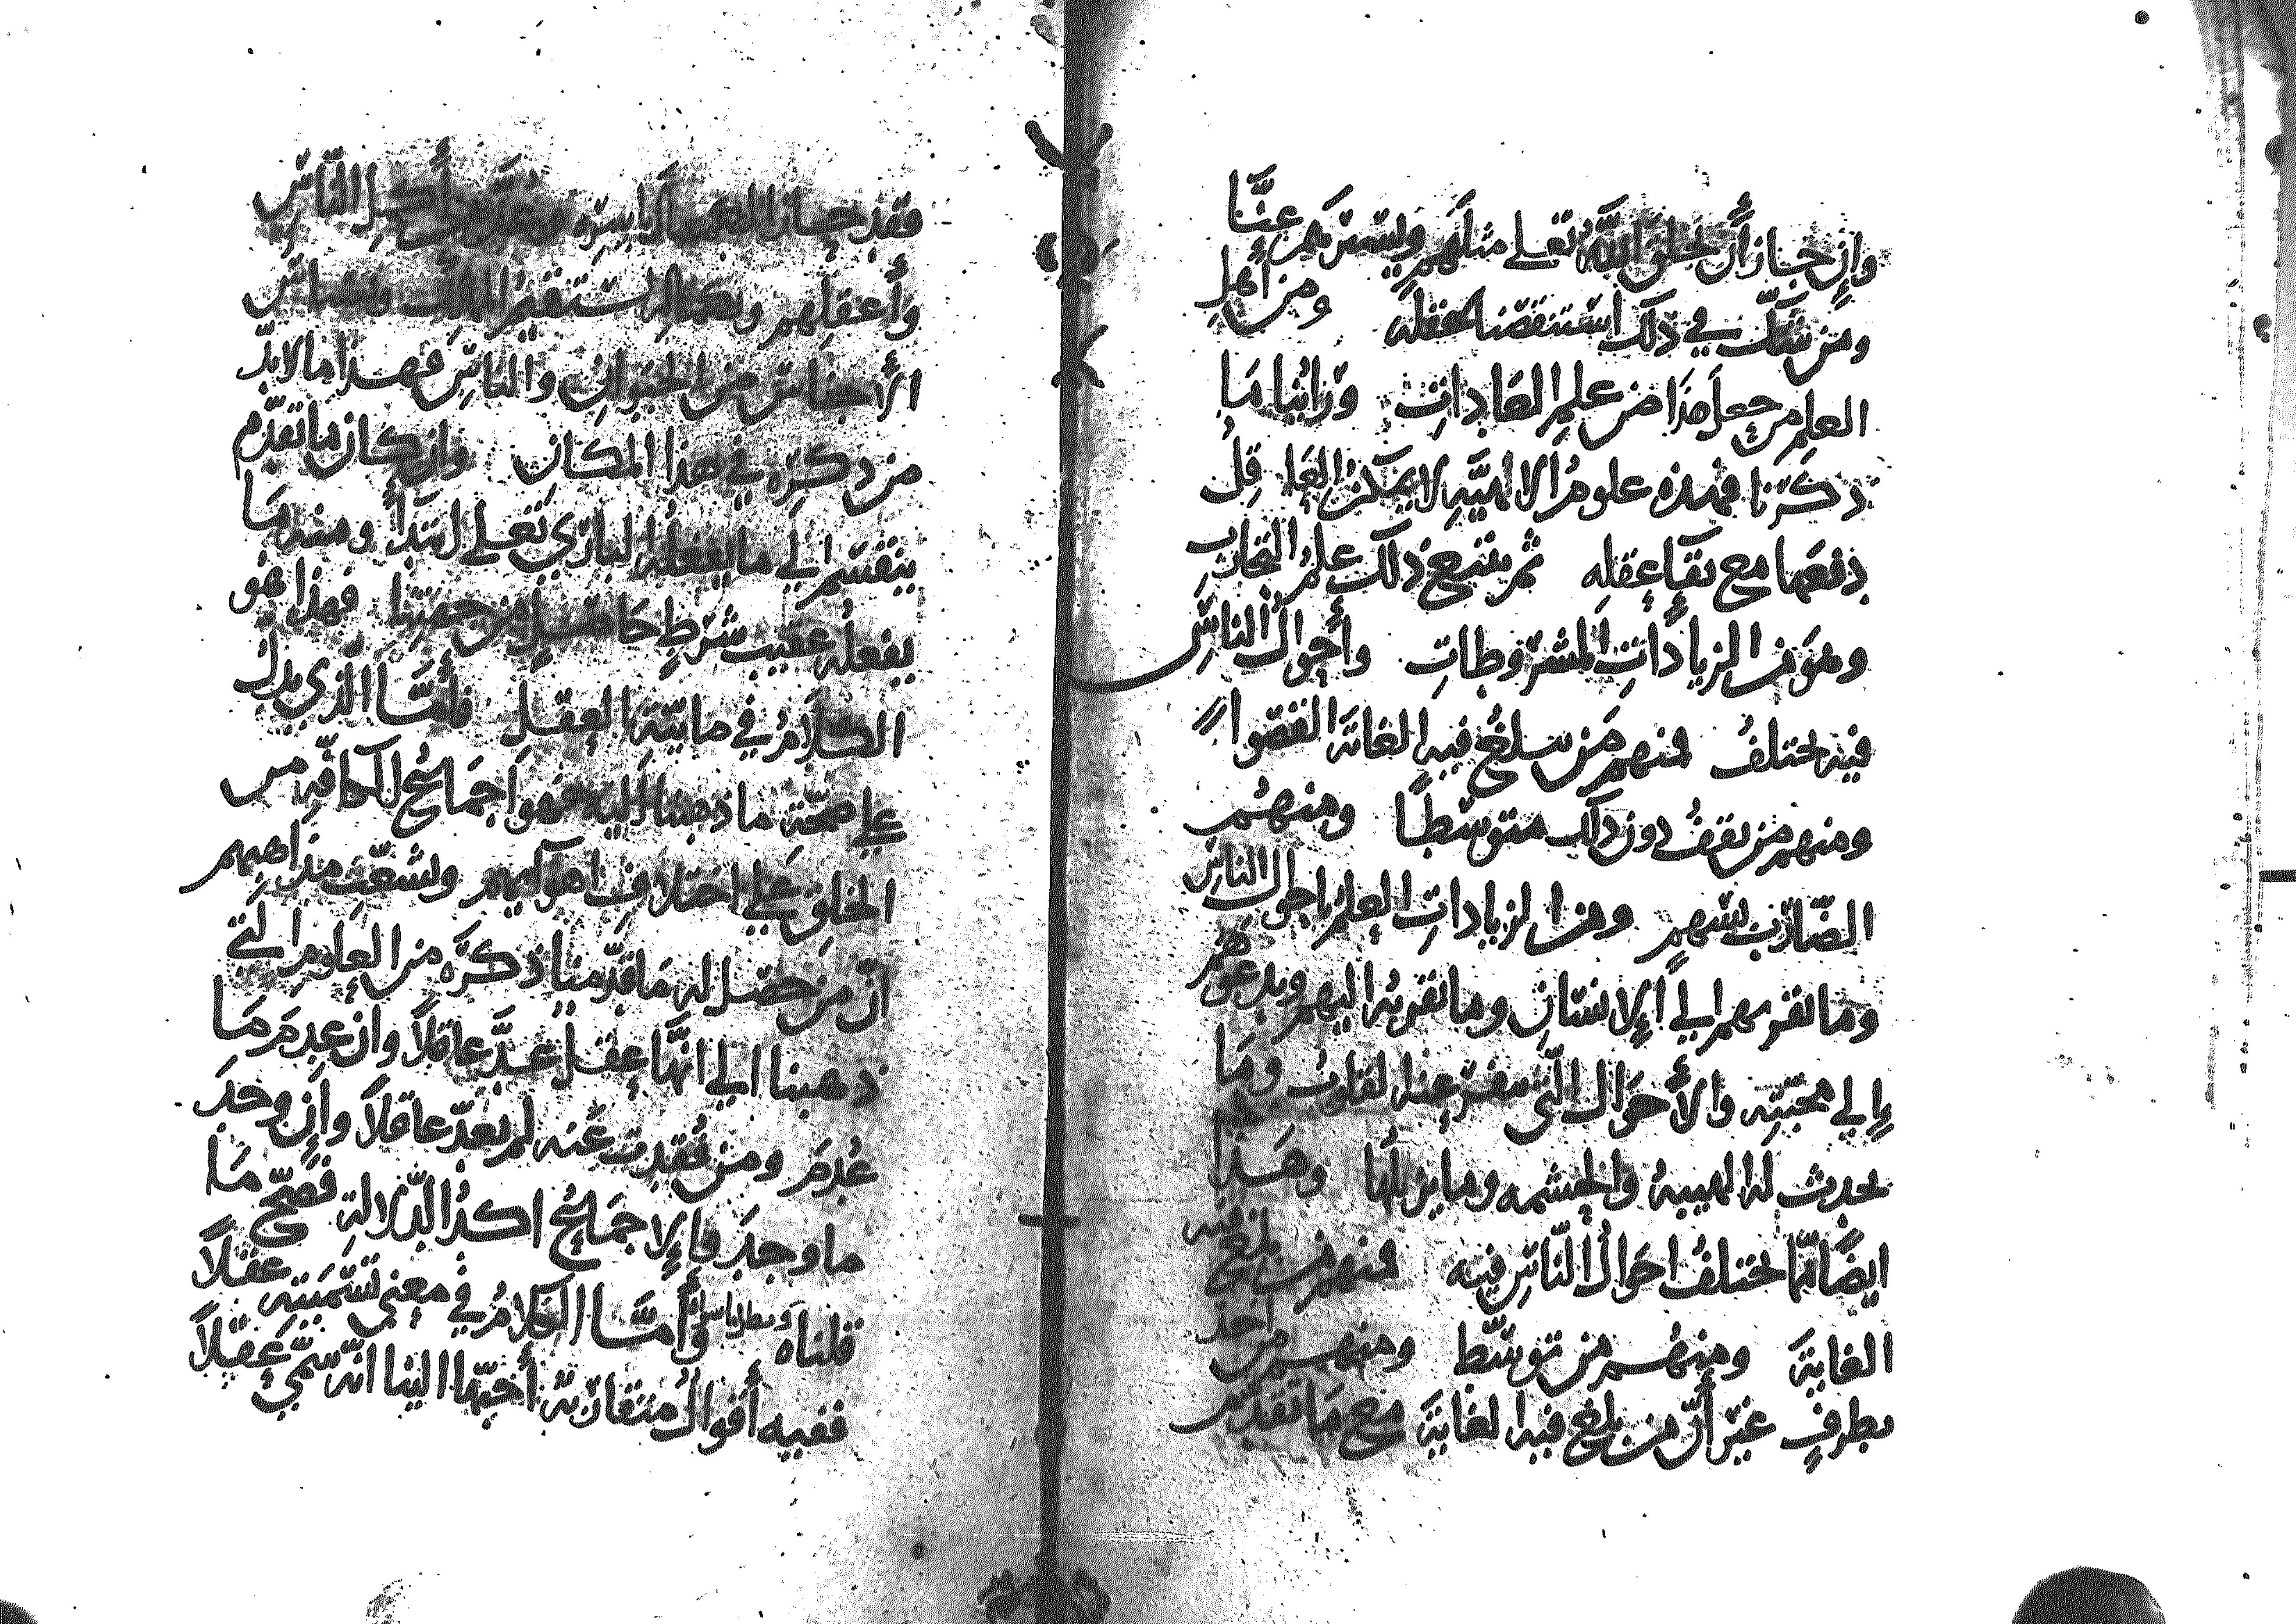 وإن جاز أن يخلق الله تعلى مثلهم ويسترهم عنَّا
ومن شكّ في ذلك استنقصنا عقله ومن أهلِ
العلمِ من جعل هذا من علمِ العَاداتِ ورابُها مَا
ذكَرنا فهذه علومٌ الاهيَّه لا يمكن العَاقِلُ
دفعَها مع بقآ عقله ثم يتبع ذلك علمُ التجاربِ
وهو من الزياداتِ المشرُوطاتِ وأحوالُ الناسِ
فيه تختلفُ فمنهم مَن يبلغُ فيه الغايَة القصوا
ومنهم من يقفُ دون ذلك متوسّطًا ومنهُم
الضّاربُ بسَهمٍ ومن الزياداتِ العِلمُ باحوال الناسِ
وما يقربهم إلى الإنسانِ وما يقربُه اليهم ويدعوهُم
إلي محبّتِه والأحوَال الّتي عند القلوب ومَا
يحدث له الهيبةُ والحشمه وما يزيلُها وهَذا
ايضًا ممّا تختلفُ احوَالُ النّاسِ فيه فمنهم من يبلغ فيه
الغايَةَ ومنهُم من توسّط ومنهم من اخذ
بطرفٍ غيرَ أنّ من بلغ فيه الغايَةَ مع مَا تقدّم
فقد حاز الكمال أكملِ النّاسِ
وأعقلِهم وبكماله تستقيمُ
الأجناس من الحيوانِ والناسِ فهذا ما لا بدّ
من ذكرِه في هذا المكانِ وإن كان ما تقدّم
ينقسم إلى ما يفعلُه الباري تَعلى ابتدآءً ومنه مَا
يفعلُه عقيب شرطٍ حَاصلٍ من جهتِنا فهذا هو
الكلامُ في مايّيّة العقلِ فأمّا الّذي يدلُّ
علي صحّة ما ذهبنا اليه فهو اجمَاعُ الكافّه من
الخلقِ علي اختلافِ اهوآيهم وتشعّبِ مذاهبِهم
أنّ من حصَل له مَا قدّمنا ذكرَه من العلومِ الّتي
ذهبنا الي انّها عقلٌ عدَّ عاقلًا وان عدِمَ مَا
عُدِمَ ومن فُقدت عَنه لم يعدّ عاقلًا وإن وجدَ
ما وجدَ والإجمَاعُ اكدُ الدّلالةِ فصَحّ مَا
قلناهُ وأمَّا الكلامُ في معنى تسميَتِه عقلًا
ففيه أقوالٌ متقاربَة أحبّها الينا انّه سمّي عقلًا